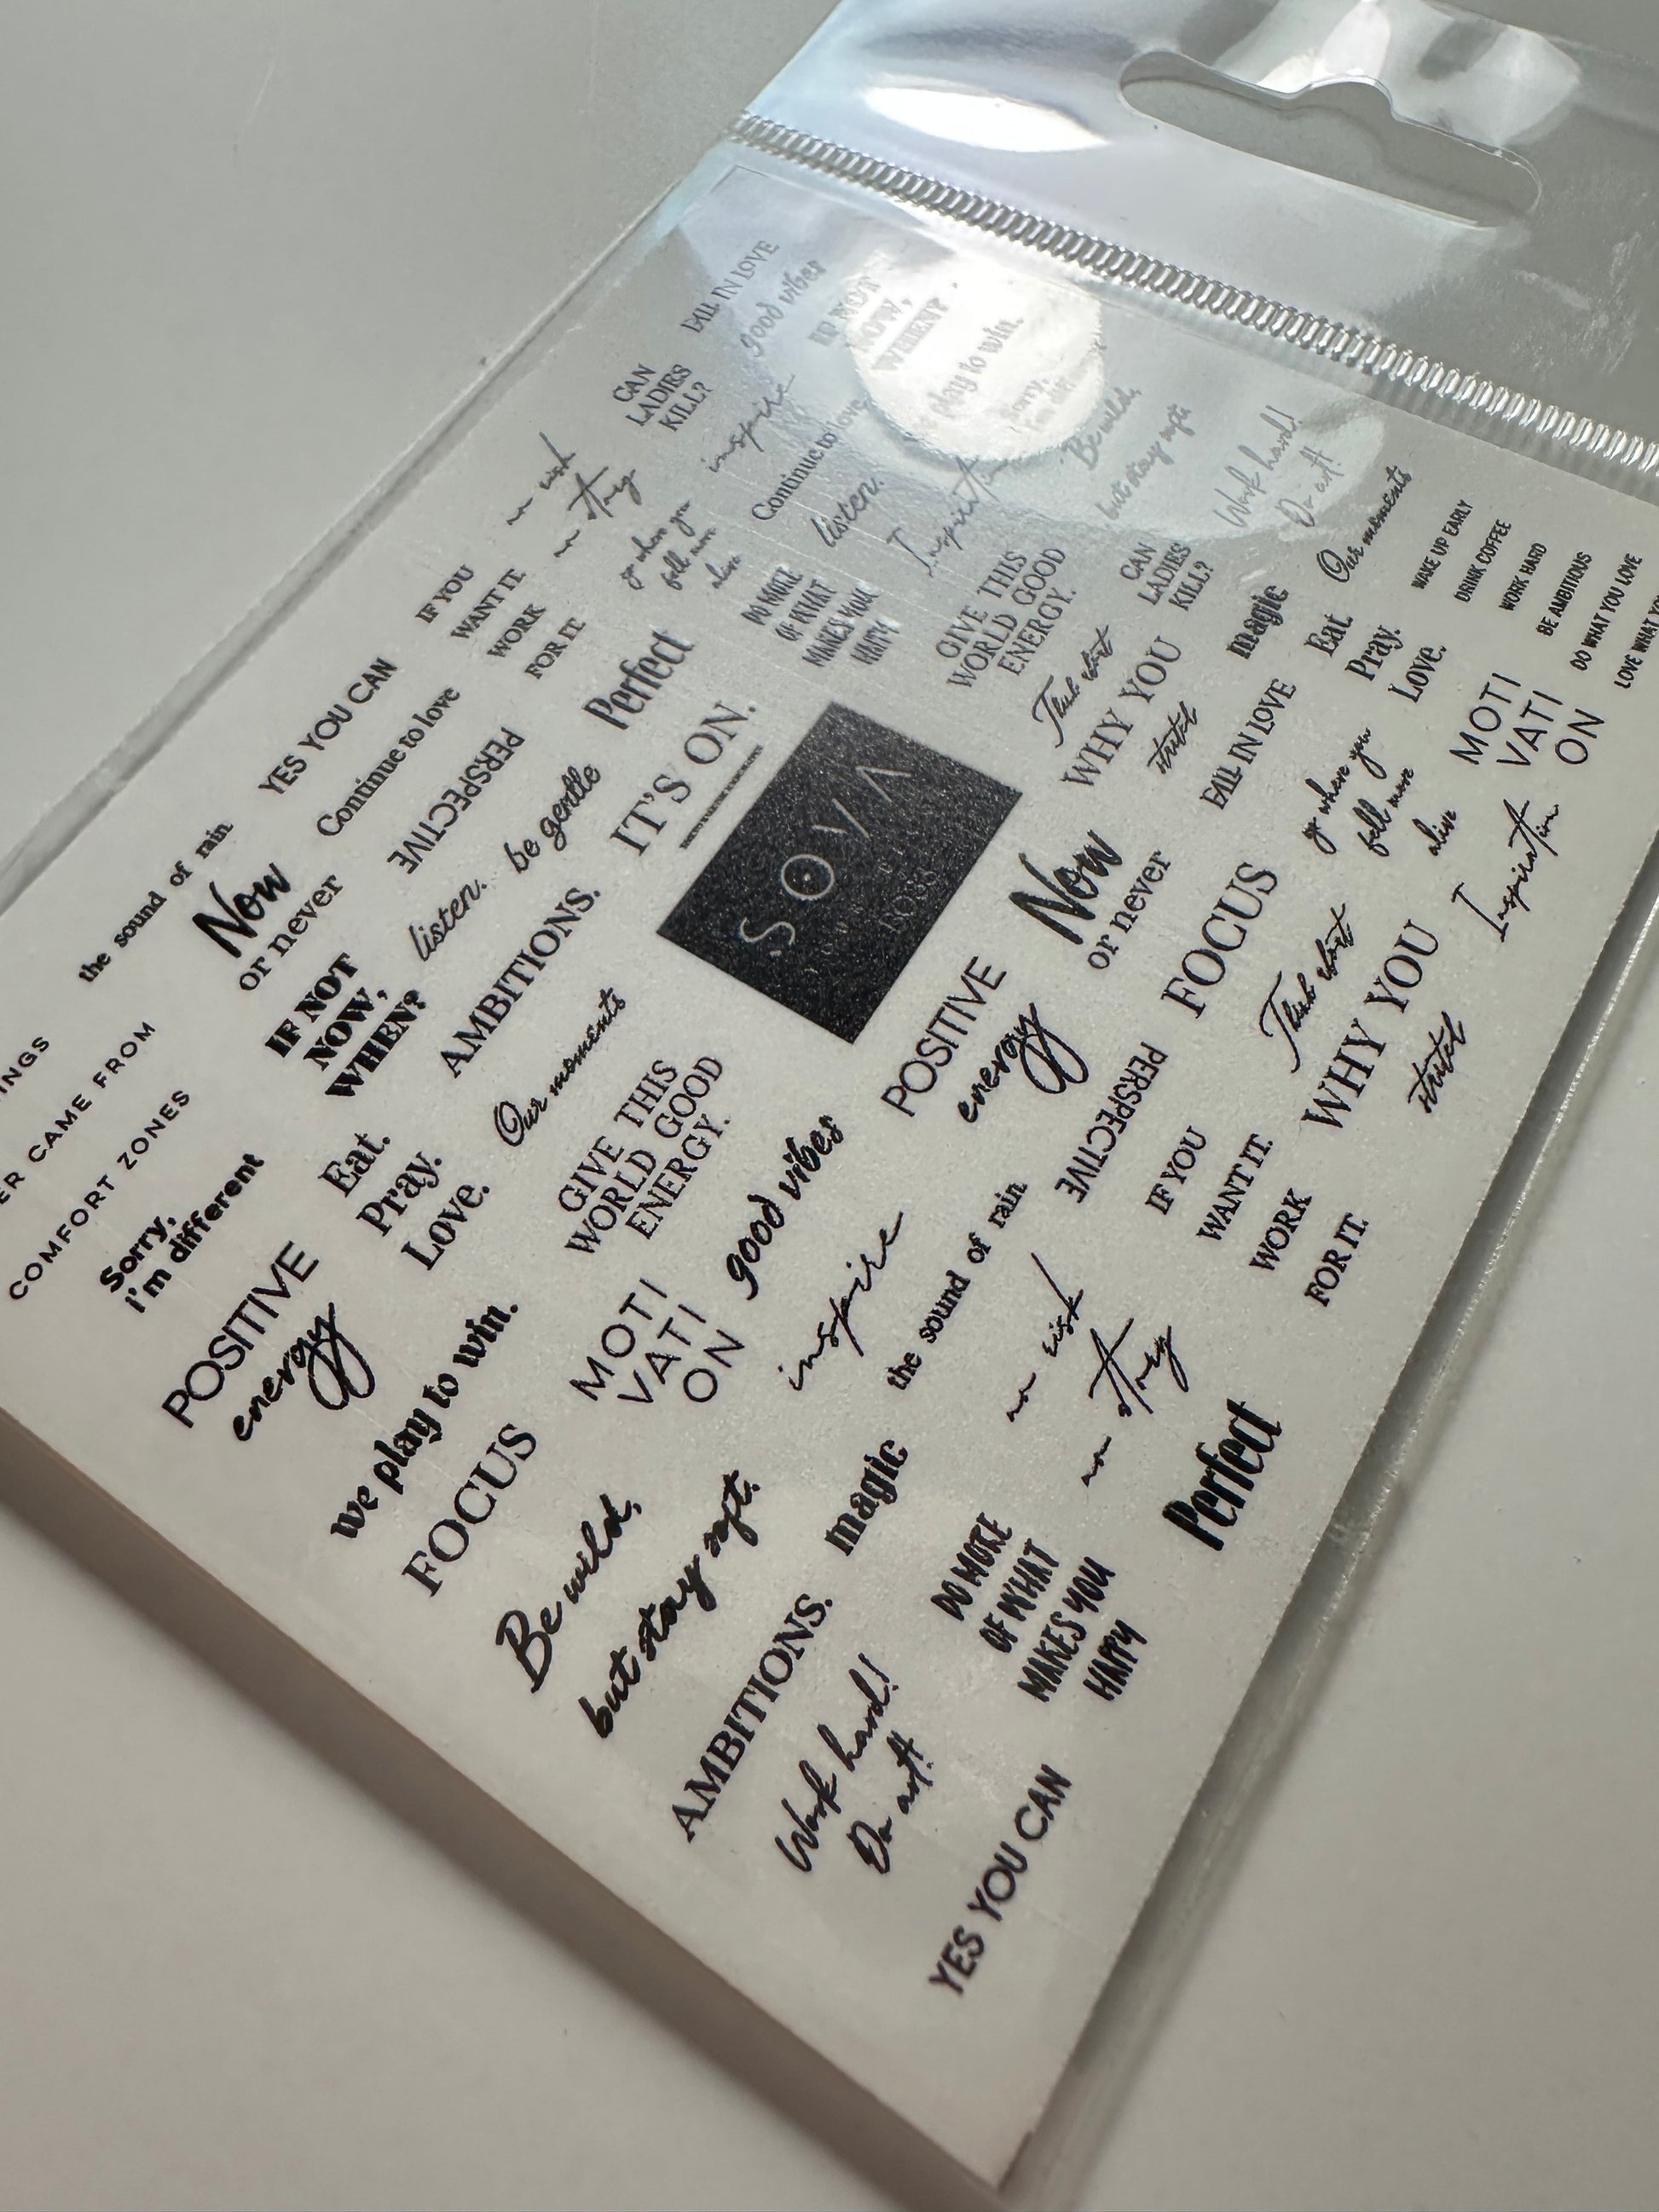 FALL IN LOVE
good vibes
IF NOT
NOW,
WHEN?
play to win.
Sorry,
CAN
LADIES
KILL?
inspire
Continue to love
listen.
Inspiration
Be wild,
but stay soft
Work hard!
Do art!
Our moments
WAKE UP EARLY
DRINK COFFEE
WORK HARD
BE AMBITIOUS
DO WHAT YOU LOVE
LOVE WHAT
no risk
no story
go where you
fell more
alive
DO MORE
OF WHAT
MAKES YOU
HAPPY
GIVE THIS
WORLD GOOD
ENERGY.
CAN
LADIES
KILL?
magic
Eat.
Pray.
Love.
MOTI
VATI
ON
IF YOU
WANT IT
WORK
FOR IT
Perfect
IT'S ON.
Think about
WHY YOU
started
FALL IN LOVE
go where you
fell more
alive
Inspiration
YES YOU CAN
Continue to love
PERSPECTIVE
be gentle
SOVA
Now
or never
FOCUS
Think about
WHY YOU
started
the sound of rain
Now
or never
listen.
AMBITIONS.
POSITIVE
energy
PERSPECTIVE
IF YOU
WANT IT.
WORK
FOR IT.
INGS
ER CAME FROM
COMFORT ZONES
IF NOT
NOW,
WHEN?
Our moments
GIVE THIS
WORLD GOOD
ENERGY.
good vibes
inspire
the sound of rain
no risk
no story
Perfect
Sorry,
i'm different
Eat.
Pray.
Love.
MOTI
VATI
ON
magic
DO MORE
OF WHAT
MAKES YOU
HAPPY
POSITIVE
energy
we play to win.
FOCUS
Be wild,
but stay soft.
AMBITIONS.
Work hard!
Do art!
YES YOU CAN